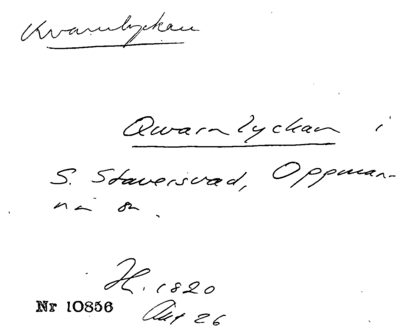 Kvarnlyckan
Qwarnlyckan i
S. Staversvad, Oppman-
na sn.
H. 1820
Akt 26
Nr 10856